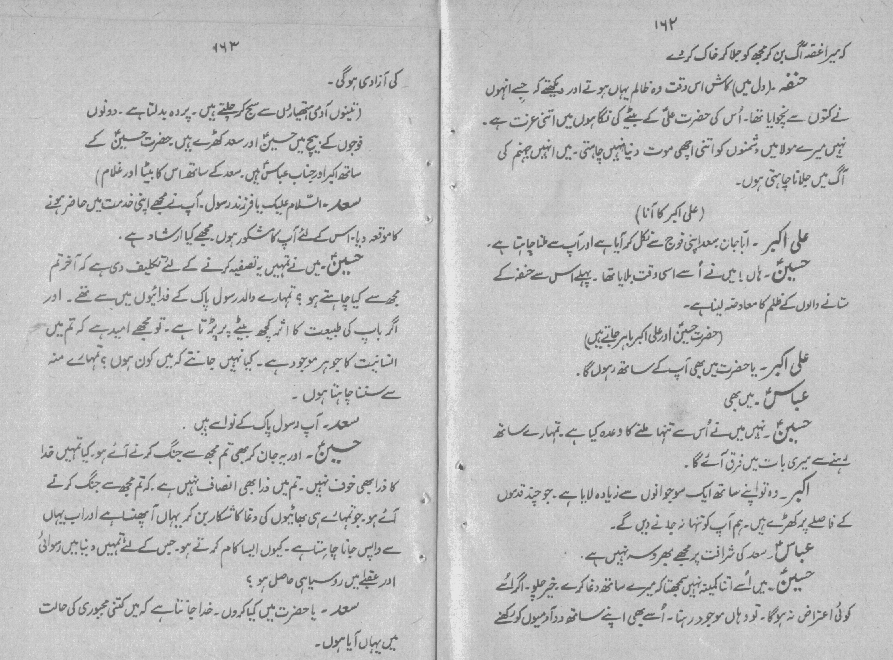 ۱۶۲
کہ میرا غصہ آگ بن کر مجھ کو جلا کر خاک کر دے
حنفہ ۔ (دل میں) کاش اس وقت وہ ظالم یہاں ہوتے اور دیکھتے کہ جسے انہوں
نے کتوں سے نچوایا تھا۔ اُس کی حضرت علیؑ کے بیٹے کی نگاہوں میں اتنی عزت ہے۔
نہیں میرے مولا میں دشمنوں کو اتنی اچھی موت دینا نہیں چاہتی۔ میں انہیں جہنم کی
آگ میں جلانا چاہتی ہوں۔
(علی اکبر کا آنا)
علی اکبر ۔ ابا جان سعد اپنی فوج سے نکل کر آیا ہے اور آپ سے ملنا چاہتا ہے۔
حسینؑ ۔ ہاں! میں نے اُسے اسی وقت بلایا تھا۔ پہلے اس سے حنفہ کے
ستانے والوں کے ظلم کا معاوضہ لینا ہے۔
(حضرت حسینؑ اور علی اکبر باہر جاتے ہیں)
علی اکبر ۔ یا حضرت میں بھی آپ کے ساتھ رہوں گا۔
عباسؑ ۔ میں بھی
حسینؑ ۔ نہیں میں نے اُس سے تنہا ملنے کا وعدہ کیا ہے۔ تمہارے ساتھ
رہنے سے میری بات میں فرق آئے گا۔
اکبر ۔ وہ تو اپنے ساتھ ایک سو جوانوں سے زیادہ لایا ہے۔ جو چند قدموں
کے فاصلے پر کھڑے ہیں۔ ہم آپ کو تنہا نہ جانے دیں گے۔
عباسؑ ۔ سعد کی شرافت پر مجھے بھروسہ نہیں ہے۔
حسینؑ ۔ میں اُسے اتنا کمینہ نہیں سمجھتا کہ میرے ساتھ دغا کرے۔ خیر چلو۔ اگر اُسے
کوئی اعتراض نہ ہوگا۔ تو وہاں موجود رہنا۔ اُسے بھی اپنے ساتھ دو آدمیوں کو رکھنے
۱۶۳
کی آزادی ہوگی۔
(تینوں آدمی ہتھیاروں سے سج کر چلتے ہیں۔ پردہ بدلتا ہے۔ دونوں
فوجوں کے بیچ میں حسینؑ اور سعد کھڑے ہیں۔ حضرت حسینؑ کے
ساتھ اکبر اور جناب عباسؑ ہیں۔ سعد کے ساتھ اس کا بیٹا اور غلام)
سعد ۔ السلام علیک یا فرزند رسول۔ آپ نے مجھے اپنی خدمت میں حاضر ہونے
کا موقعہ دیا۔ اس کے لئے آپ کا مشکور ہوں۔ مجھے کیا ارشاد ہے۔
حسینؑ ۔ میں نے تمہیں یہ تصفیہ کرنے کے لئے تکلیف دی ہے کہ آخر تم
مجھ سے کیا چاہتے ہو؟ تمہارے والد رسول پاک کے فدائیوں میں سے تھے۔ اور
اگر باپ کی طبیعت کا اثر کچھ بیٹے پر پڑتا ہے۔ تو مجھے امید ہے کہ تم میں
انسانیت کا جوہر موجود ہے۔ کیا نہیں جانتے کہ میں کون ہوں؟ تمہارے منہ
سے سننا چاہتا ہوں۔
سعد ۔ آپ رسول پاک کے نواسے ہیں۔
حسینؑ ۔ اور یہ جان کر بھی تم مجھ سے جنگ کرنے آئے ہو۔ کیا تمہیں خدا
کا ذرا بھی خوف نہیں۔ تم میں ذرا بھی انصاف نہیں ہے۔ کہ تم مجھ سے جنگ کرنے
آئے ہو۔ جو تمہارے ہی بھائیوں کی دغا کا شکار بن کر یہاں آ پھنسا ہے اور اب یہاں
سے واپس جانا چاہتا ہے۔ کیوں ایسا کام کرتے ہو۔ جس کے لئے تمہیں دنیا میں رسوائی
اور عقبیٰ میں روسیاہی حاصل ہو؟
سعد ۔ یا حضرت میں کیا کروں۔ خدا جانتا ہے کہ میں کتنی مجبوری کی حالت
میں یہاں آیا ہوں۔